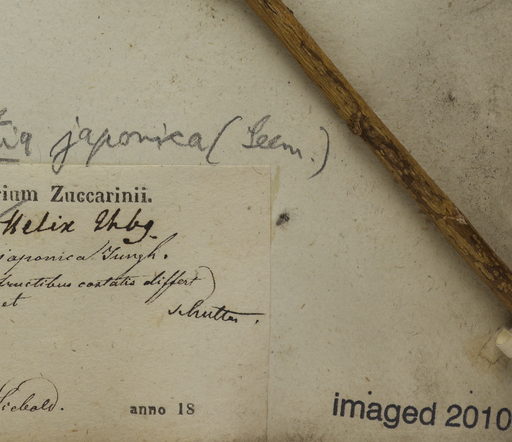 japonica (Seem.)
rium Zuccarinii.
Helix Thbg.
japonica Jungh.
fructibus costatis differt)
et
Siebold.
anno 18
imaged 2010